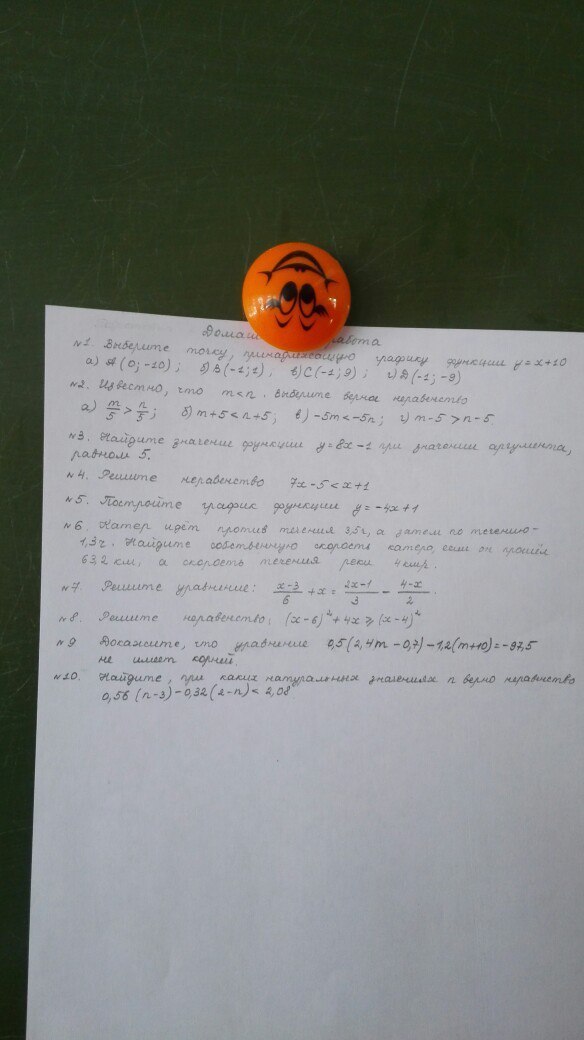 Домаш работа
№1. Выберите точку, принадлежащую графику функции y = x+10
а) A(0; -10); б) B(-1; 1); в) C(-1; 9); г) D(-1; -9)
№2. Известно, что m<n. Выберите верное неравенство
а) m/5 > n/5; б) m+5 < n+5; в) -5m < -5n; г) m-5 > n-5.
№3. Найдите значение функции y = 8x-1 при значении аргумента,
равном 5.
№4. Решите неравенство 7x-5 < x+1
№5. Постройте график функции y = -4x+1
№6 Катер идёт против течения 3,5ч, а затем по течению-
1,3ч. Найдите собственную скорость катера, если он прошёл
63,2 км, а скорость течения реки 4 км/ч.
№7. Решите уравнение: (x-3)/6 + x = (2x-1)/3 - (4-x)/2.
№8. Решите неравенство: (x-6)² + 4x ⩾ (x-4)²
№9 Докажите, что уравнение 0,5(2,4m-0,7)-1,2(m+10) = -97,5
не имеет корней.
№10. Найдите, при каких натуральных значениях n верно неравенство
0,56(n-3)-0,32(2-n) < 2,08